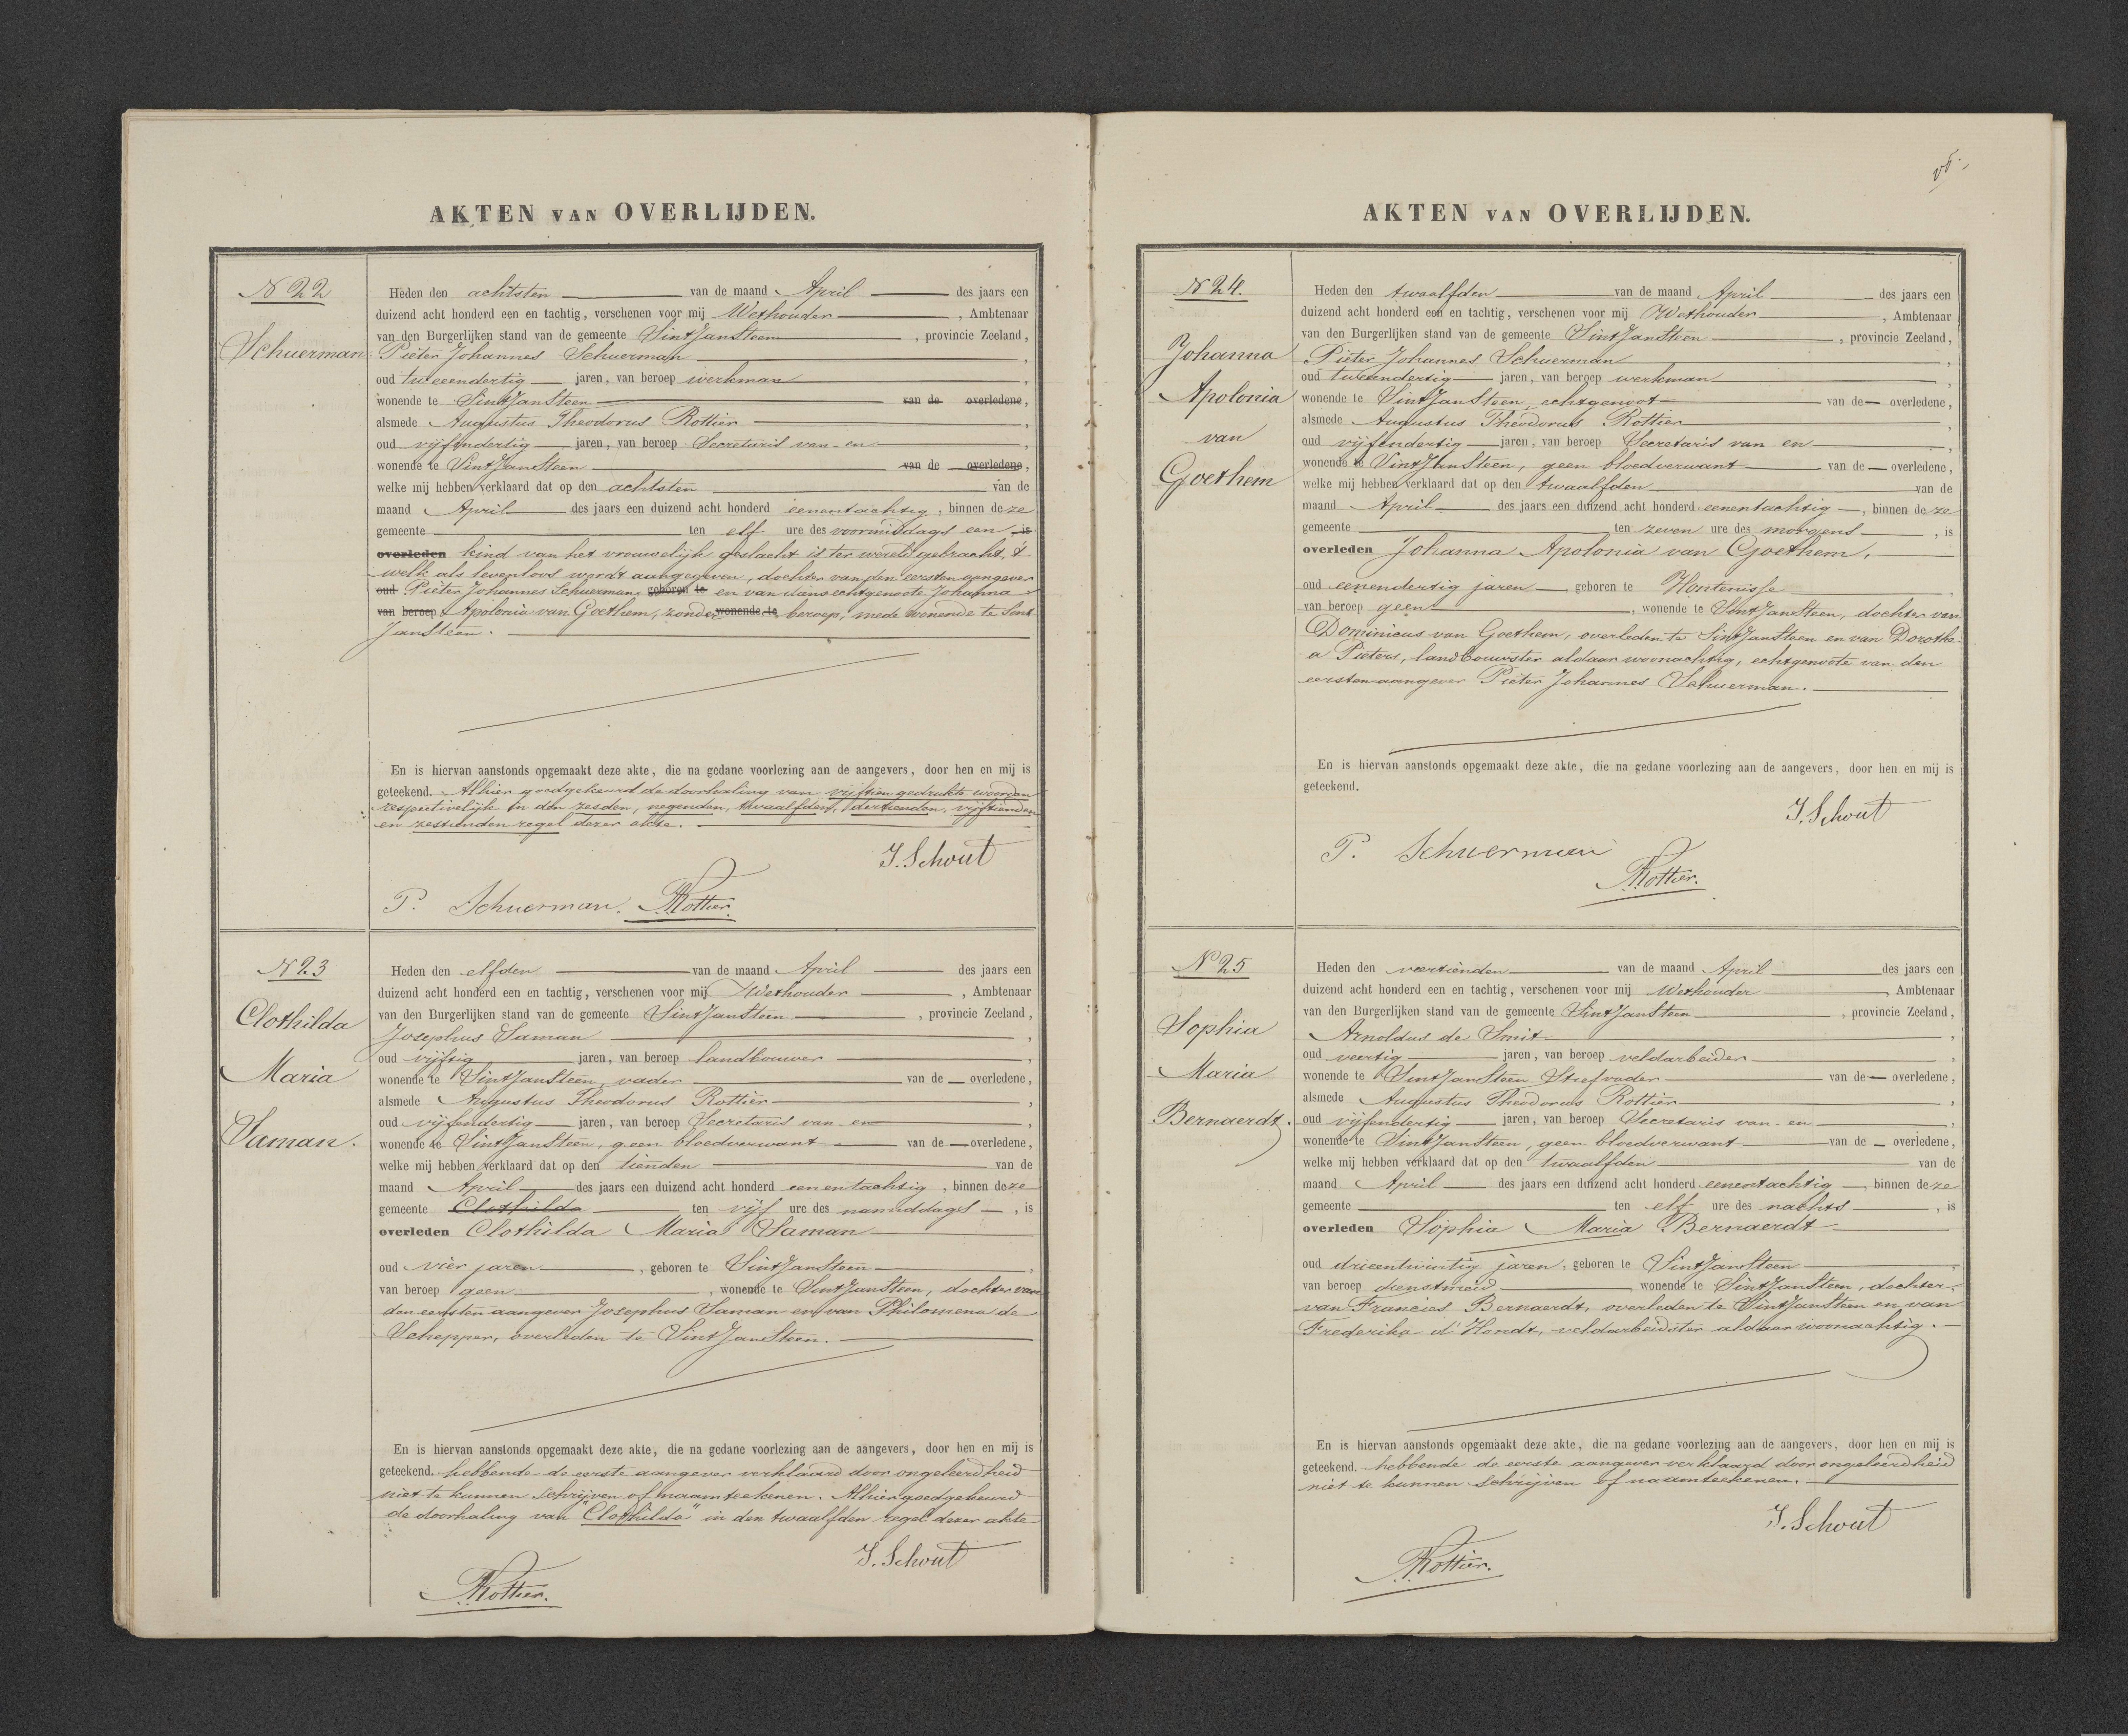 AKTEN VAN OVERLIJDEN.
N 22
Schuerman
Heden den achtsten van de maand April des jaars een
duizend acht honderd een en tachtig, verschenen voor mij Wethouder, Ambtenaar
van den Burgerlijken stand van de gemeente Sint Jan Steen, provincie Zeeland,
Pieter Johannes Schuerman,
oud tweeendertig jaren, van beroep werkman,
wonende te Sint Jan Steen van de overledene,
alsmede Augustus Theodorus Rottier,
oud vijfendertig jaren, van beroep Secretaris van en,
wonende te Sint Jan Steen van de overledene,
welke mij hebben verklaard dat op den achtsten van de
maand April des jaars een duizend acht honderd eenentachtig, binnen deze
gemeente ten elf ure des voormiddags een is
overleden kind van het vrouwelijk geslacht is ter wereld gebracht, 't
welk als levenloos wordt aangegeven, dochter van den eersten aangever
oud Pieter Johannes Schuerman geboren te en van diens echtgenoote Johanna
van beroep Apolonia van Goethem, zonder wonende te beroep, mede wonende te Sint
Jan Steen.
En is hiervan aanstonds opgemaakt deze akte, die na gedane voorlezing aan de aangevers, door hen en mij is
geteekend. Alhier goedgekeurd de doorhaling van vijftien gedrukte woorden
respectivelijk in den zesden, negenden, twaalfden, dertienden, vijftienden
en zestienden regel dezer akte.
J. Schout
P. Schuerman. Rottier.
N 23
Clothilda
Maria
Saman.
Heden den elfden van de maand April des jaars een
duizend acht honderd een en tachtig, verschenen voor mij Wethouder, Ambtenaar
van den Burgerlijken stand van de gemeente Sint Jan Steen, provincie Zeeland,
Josephus Saman,
oud vijftig jaren, van beroep landbouwer,
wonende te Sint Jan Steen, vader van de overledene,
alsmede Augustus Theodorus Rottier,
oud vijfendertig jaren, van beroep Secretaris van en,
wonende te Sint Jan Steen, geen bloedverwant van de overledene,
welke mij hebben verklaard dat op den tienden van de
maand April des jaars een duizend acht honderd eenentachtig, binnen deze
gemeente Clothilda ten vijf ure des namiddags, is
overleden Clothilda Maria Saman
oud vier jaren, geboren te Sint Jan Steen,
van beroep geen, wonende te Sint Jan Steen, dochter van
den eersten aangever Josephus Saman en van Philomena de
Schepper, overleden te Sint Jan Steen.
En is hiervan aanstonds opgemaakt deze akte, die na gedane voorlezing aan de aangevers, door hen en mij is
geteekend. hebbende de eerste aangever verklaard door ongeleerdheid
niet te kunnen schrijven of naamteekenen. Alhier goedgekeurd
de doorhaling van "Clothilda" in den twaalfden regel dezer akte
J. Schout
Rottier.
AKTEN VAN OVERLIJDEN.
N 24.
Johanna
Apolonia
van
Goethem
Heden den twaalfden van de maand April des jaars een
duizend acht honderd een en tachtig, verschenen voor mij Wethouder, Ambtenaar
van den Burgerlijken stand van de gemeente Sint Jan Steen, provincie Zeeland,
Pieter Johannes Schuerman,
oud tweeendertig jaren, van beroep werkman,
wonende te Sint Jan Steen, echtgenoot van de overledene,
alsmede Augustus Theodorus Rottier,
oud vijfendertig jaren, van beroep Secretaris van en,
wonende te Sint Jan Steen, geen bloedverwant van de overledene,
welke mij hebben verklaard dat op den twaalfden van de
maand April des jaars een duizend acht honderd eenentachtig, binnen deze
gemeente ten zeven ure des morgens, is
overleden Johanna Apolonia van Goethem,
oud eenendertig jaren geboren te Hontenisse,
van beroep geen, wonende te Sint Jan Steen, dochter van
Dominicus van Goethem, overleden te Sint Jan Steen en van Dorothe-
a Pieters, landbouwster aldaar woonachtig, echtgenoote van den
eersten aangever Pieter Johannes Schuerman.
En is hiervan aanstonds opgemaakt deze akte, die na gedane voorlezing aan de aangevers, door hen en mij is
geteekend.
J. Schout
P. Schuerman
Rottier.
N 25
Sophia
Maria
Bernaerdt.
Heden den veertienden van de maand April des jaars een
duizend acht honderd een en tachtig, verschenen voor mij Wethouder, Ambtenaar
van den Burgerlijken stand van de gemeente Sint Jan Steen, provincie Zeeland,
Arnoldus de Smit,
oud veertig jaren, van beroep veldarbeider,
wonende te Sint Jan Steen Stiefvader van de overledene,
alsmede Augustus Theodorus Rottier,
oud vijfendertig jaren, van beroep Secretaris van en,
wonende te Sint Jan Steen, geen bloedverwant van de overledene,
welke mij hebben verklaard dat op den twaalfden van de
maand April des jaars een duizend acht honderd eenentachtig, binnen deze
gemeente ten elf ure des nachts, is
overleden Sophia Maria Bernaerdt
oud drieentwintig jaren, geboren te Sint Jan Steen,
van beroep dienstmeid wonende te Sint Jan Steen, dochter
van Francies Bernaerdt, overleden te Sint Jan Steen en van
Frederika d'Hondt, veldarbeidster aldaar woonachtig.
En is hiervan aanstonds opgemaakt deze akte, die na gedane voorlezing aan de aangevers, door hen en mij is
geteekend. hebbende de eerste aangever verklaard door ongeleerdheid
niet te kunnen schrijven of naamteekenen.
J. Schout
Rottier.